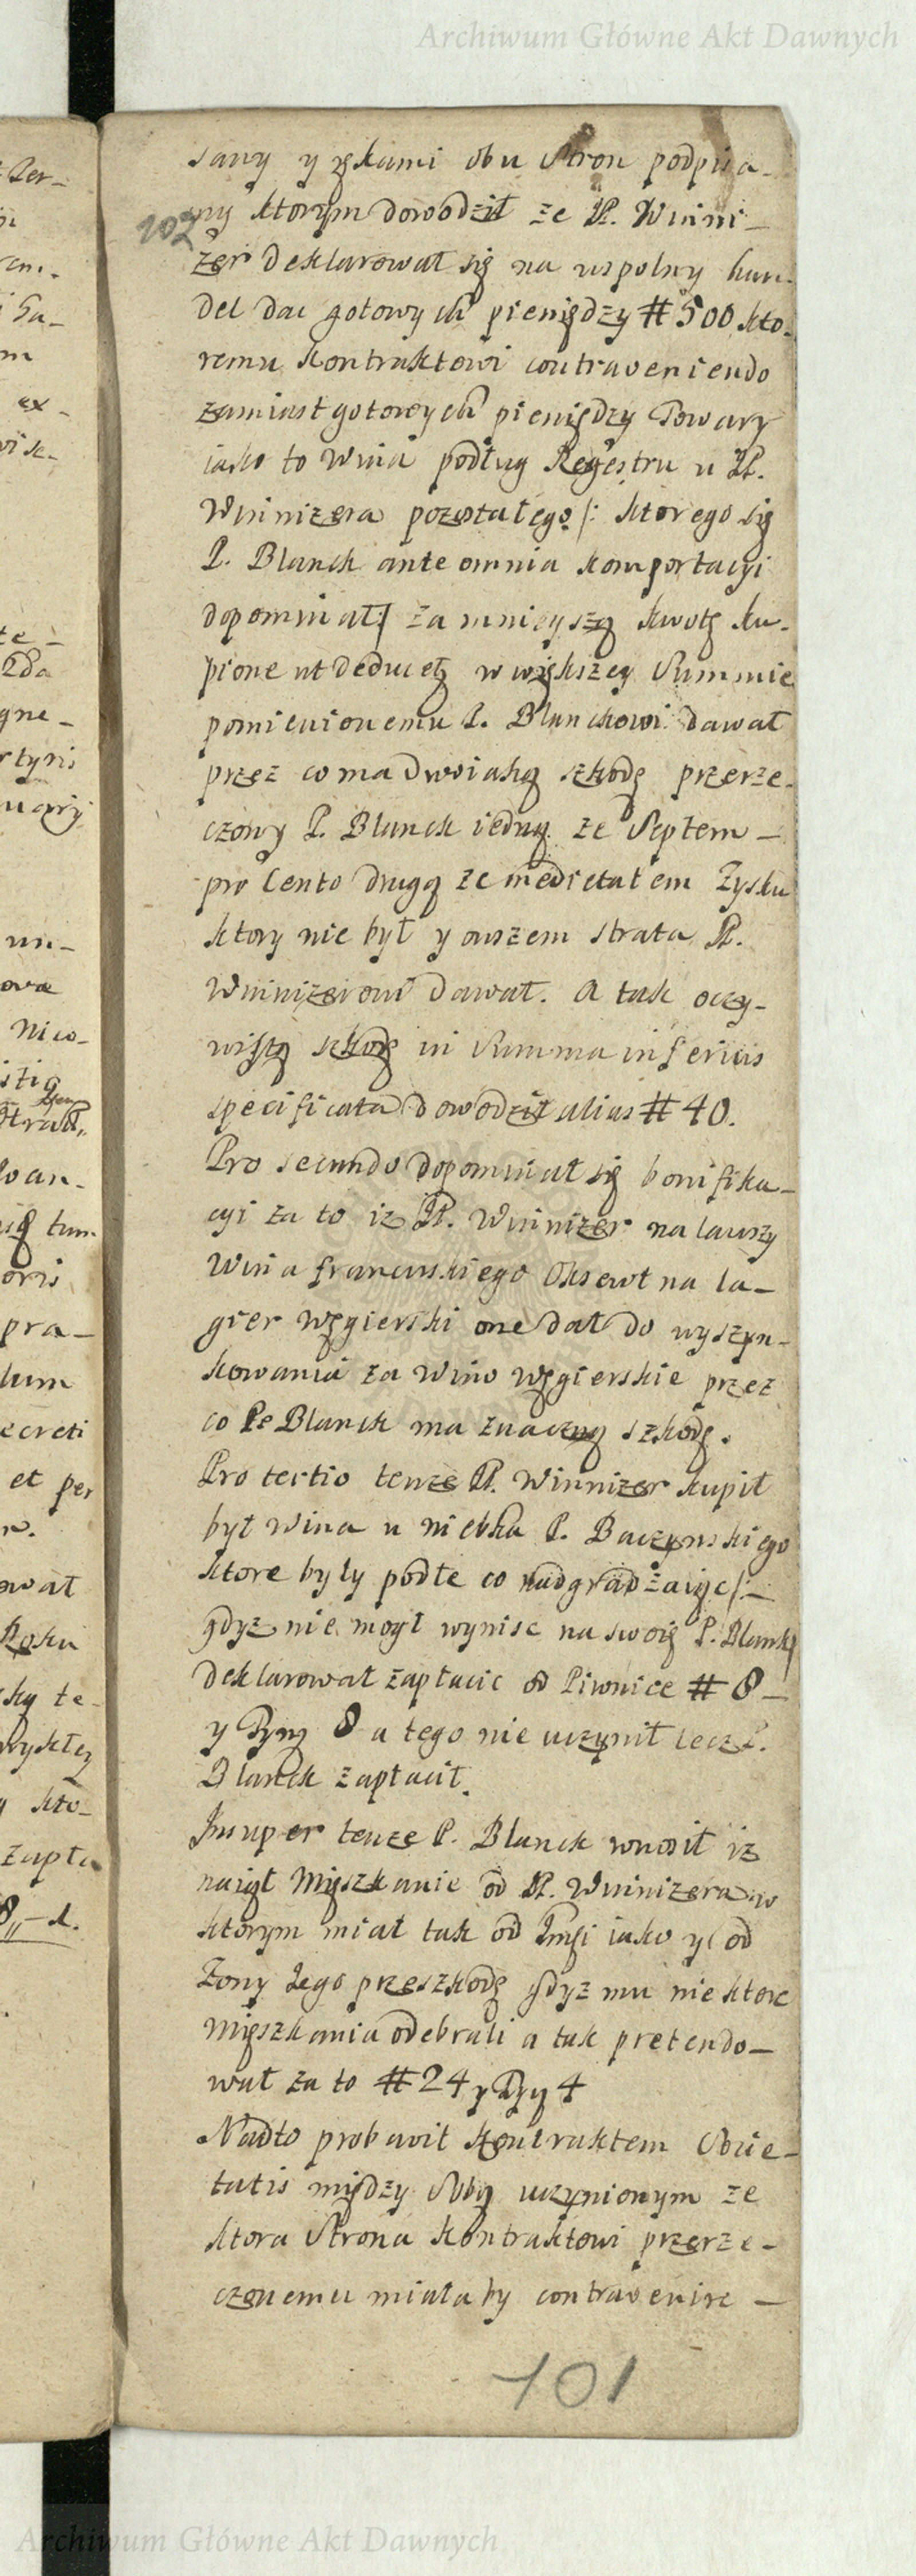 Archiwum Główne Akt Dawnych
sany y rękami obu Stron podpisa-
ny ktorym dowodził ze JP. Winni-
102
zer deklarował się na wspolny han-
del dac gotowych pieniędzy # 500 kto-
remu kontraktowi contraveniendo
zamiast gotowych pieniędzy Towary
iako to Wina podług Regestru u JP.
Winnizera pozostałego /: ktorego się
P. Blanck ante omnia komportacyi
dopominał :/ za mnieyszą kwotę ku-
pione ut deducet, w większey Summie
pomienionemu P. Blanckowi dawał
przez co ma dwoiaką szkodę przerze-
czony P. Blanck iedną ze Septem -
pro Cento drugą ze medietatem Zysku
ktory nie był y owszem strata JP.
Winnizerowi dawał. A tak oczy-
wistą szkodę in Summa inferius
specificata dowodził alias # 40.
Pro secundo dopominał się bonifika-
cyi za to iz JP. Winnizer nalawszy
Wina francuskiego Oksewt na la-
gier węgierski one dał do wyszyn-
kowania za Wino węgierskie przez
co P. Blanck ma znaczną szkodę.
Pro tertio tenze JP. Winnizer kupił
był Wina u niebka P. Baczynskiego
ktore były podłe co nadgradzaiąc /: -
gdyz nie mogł wynisc na swoię P. Blank :/
deklarował zapłacic od Piwnice # 8 -
y Tynf 8 a tego nie uczynił lecz P.
Blanck zapłacił.
Insuper tenze P. Blanck wnosił iz
naiął Mięszkanie od JP. Winnizera w
ktorym miał tak od Jmsci iako y od
Zony Jego przeszkodę gdyz mu niektore
Mięszkania odebrali a tak pretendo-
wał za to # 24 y Tynf 4
Nadto probawił kontraktem Socie-
tatis między Sobą uczynionym ze
ktora Strona kontraktowi przerze-
czonemu miałaby contravenire -
101
Archiwum Główne Akt Dawnych